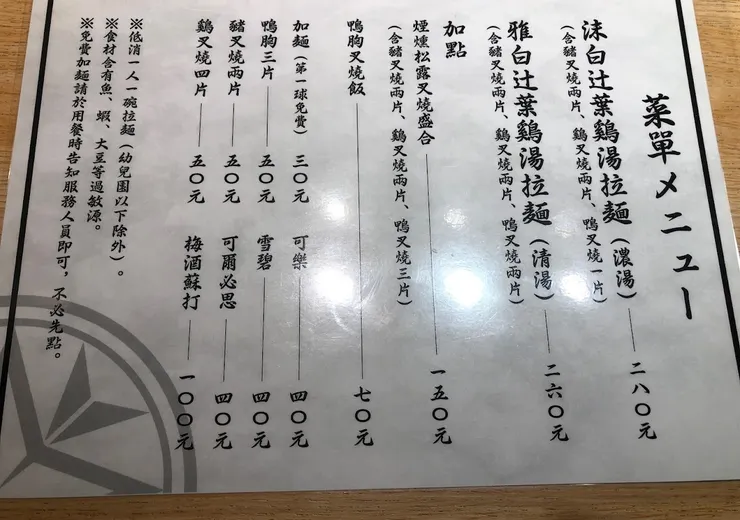 菜單メニュー
沫白辻葉鷄湯拉麵（濃湯）——二八〇元
（含豬叉燒兩片、鷄叉燒兩片、鴨叉燒一片）
雅白辻葉鷄湯拉麵（清湯）——二六〇元
（含豬叉燒兩片、鷄叉燒兩片、鴨叉燒兩片）
加點
煙燻松露叉燒盛合——一五〇元
（含豬叉燒兩片、鷄叉燒兩片、鴨叉燒三片）
鴨胸叉燒飯——七〇元
加麵（第一球免費）三〇元
鴨胸三片——五〇元
豬叉燒兩片——五〇元
鷄叉燒四片——五〇元
可樂——四〇元
雪碧——四〇元
可爾必思——四〇元
梅酒蘇打——一〇〇元
※低消一人一碗拉麵（幼兒園以下除外）。
※食材含有魚、蝦、大豆等過敏源。
※免費加麵請於用餐時告知服務人員即可，不必先點。